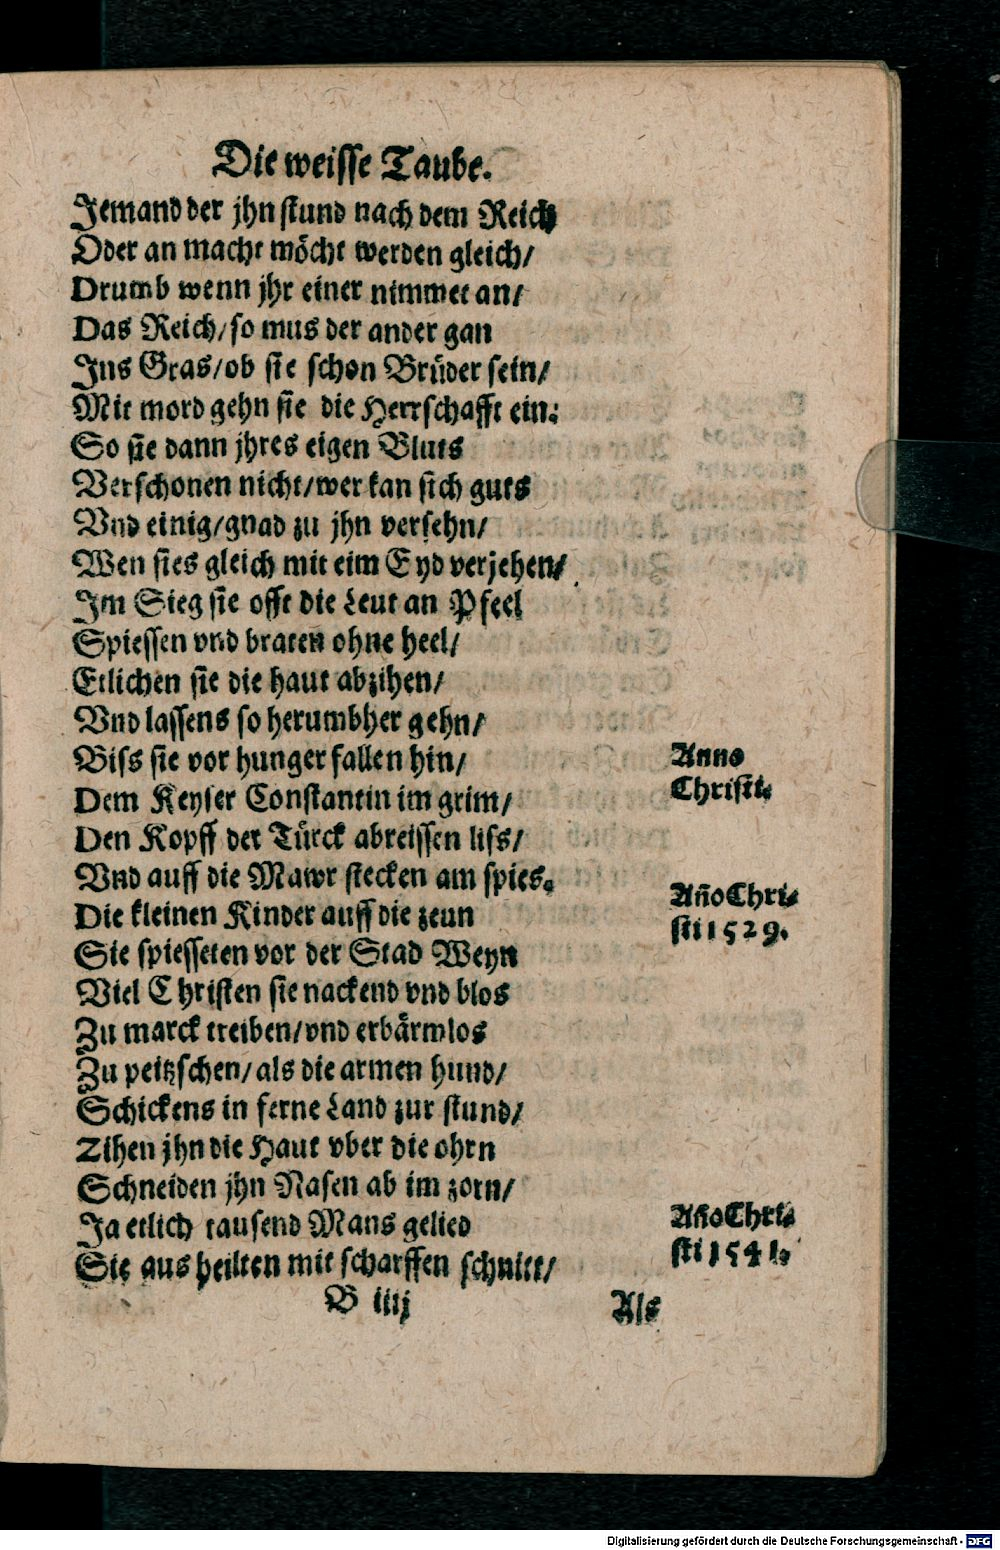 Die weisse Taube.
Jemand der jhn stund nach dem Reich
Oder an macht möcht werden gleich/
Drumb wenn jhr einer nimmet an/
Das Reich/ so mus der ander gan
Ins Gras/ ob sie schon Brüder sein/
Mit mord gehn sie die Herrschafft ein:
So sie dann jhres eigen Bluts
Verschonen nicht/ wer kan sich guts
Vnd einig/ gnad zu jhn versehn/
Wen sies gleich mit eim Eyd verjehen/
Im Sieg sie offt die Leut an Pfeel
Spiessen vnd braten ohne heel/
Etlichen sie die haut abzihen/
Vnd lassens so herumbher gehn/
Biss sie vor hunger fallen hin/
Anno
Christi.
Dem Keyser Constantin im grim/
Den Kopff der Türck abreissen liss/
Vnd auff die Mawr stecken am spies.
Die kleinen Kinder auff die zeun
Año Chri-
sti 1529.
Sie spiesseten vor der Stad Weyn
Viel Christen sie nackend vnd blos
Zu marck treiben/ vnd erbärmlos
Zu peitzschen/ als die armen hund/
Schickens in ferne Land zur stund/
Zihen jhn die Haut vber die ohrn
Schneiden jhn Nasen ab im zorn/
Ja etlich tausend Mans gelied
Sie aus heilten mit scharffen schnitt/
Año Chri-
sti 1541.
B iiij
Als
Digitalisierung gefördert durch die Deutsche Forschungsgemeinschaft - DFG